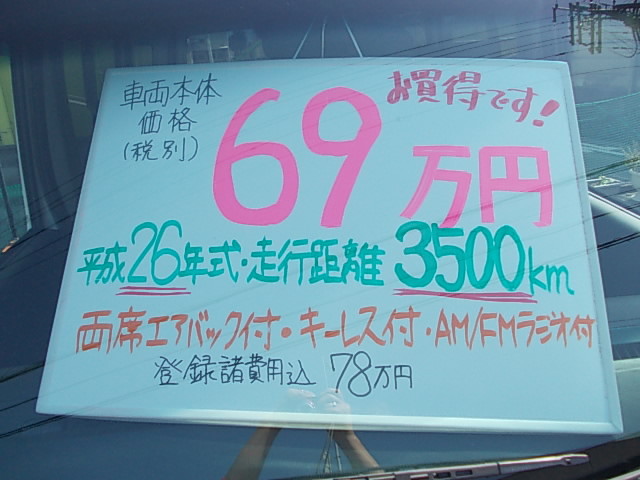 お買得です!
車両本体
価格
(税別)
69万円
平成26年式・走行距離 3500km
両席エアバック付・キーレス付・AM/FMラジオ付
登録諸費用込 78万円